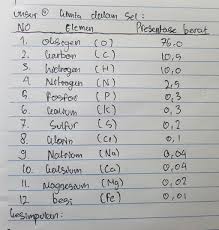 Unsur ② kimia dalam Sel :
NO Elemen Presentase berat
1. Oksigen (O) 76,0
2. Karbon (C) 10,5
3. Hidrogen (H) 10,0
4. Nitrogen (N) 2,5
5. Fosfor (P) 0,3
6. Kalium (K) 0,3
7. Sulfur (S) 0,2
8. Klorin (Cl) 0,1
9. Natrium (Na) 0,04
10. Kalsium (Ca) 0,04
11. Magnesium (Mg) 0,02
12. besi (Fe) 0,01
Kesimpulan :